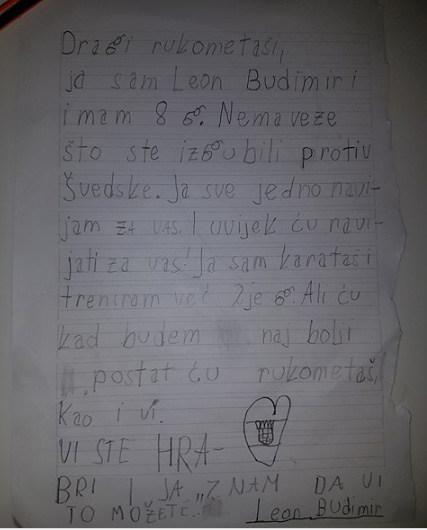 Dragi rukometaši,
ja sam Leon Budimir i
imam 8 god. Nema veze
što ste izgubili protiv
Švedske. Ja sve jedno navi-
jam ZA VAS. I uvijek ću navi-
jati za vas! Ja sam karataš i
treniram već 2 je god. Ali ću
kad budem naj bolji
postat ću rukometaš,
Kao i vi.
VI STE HRA-
BRI I JA „ZNAM DA VI
TO MOŽETE.
Leon BUdimir